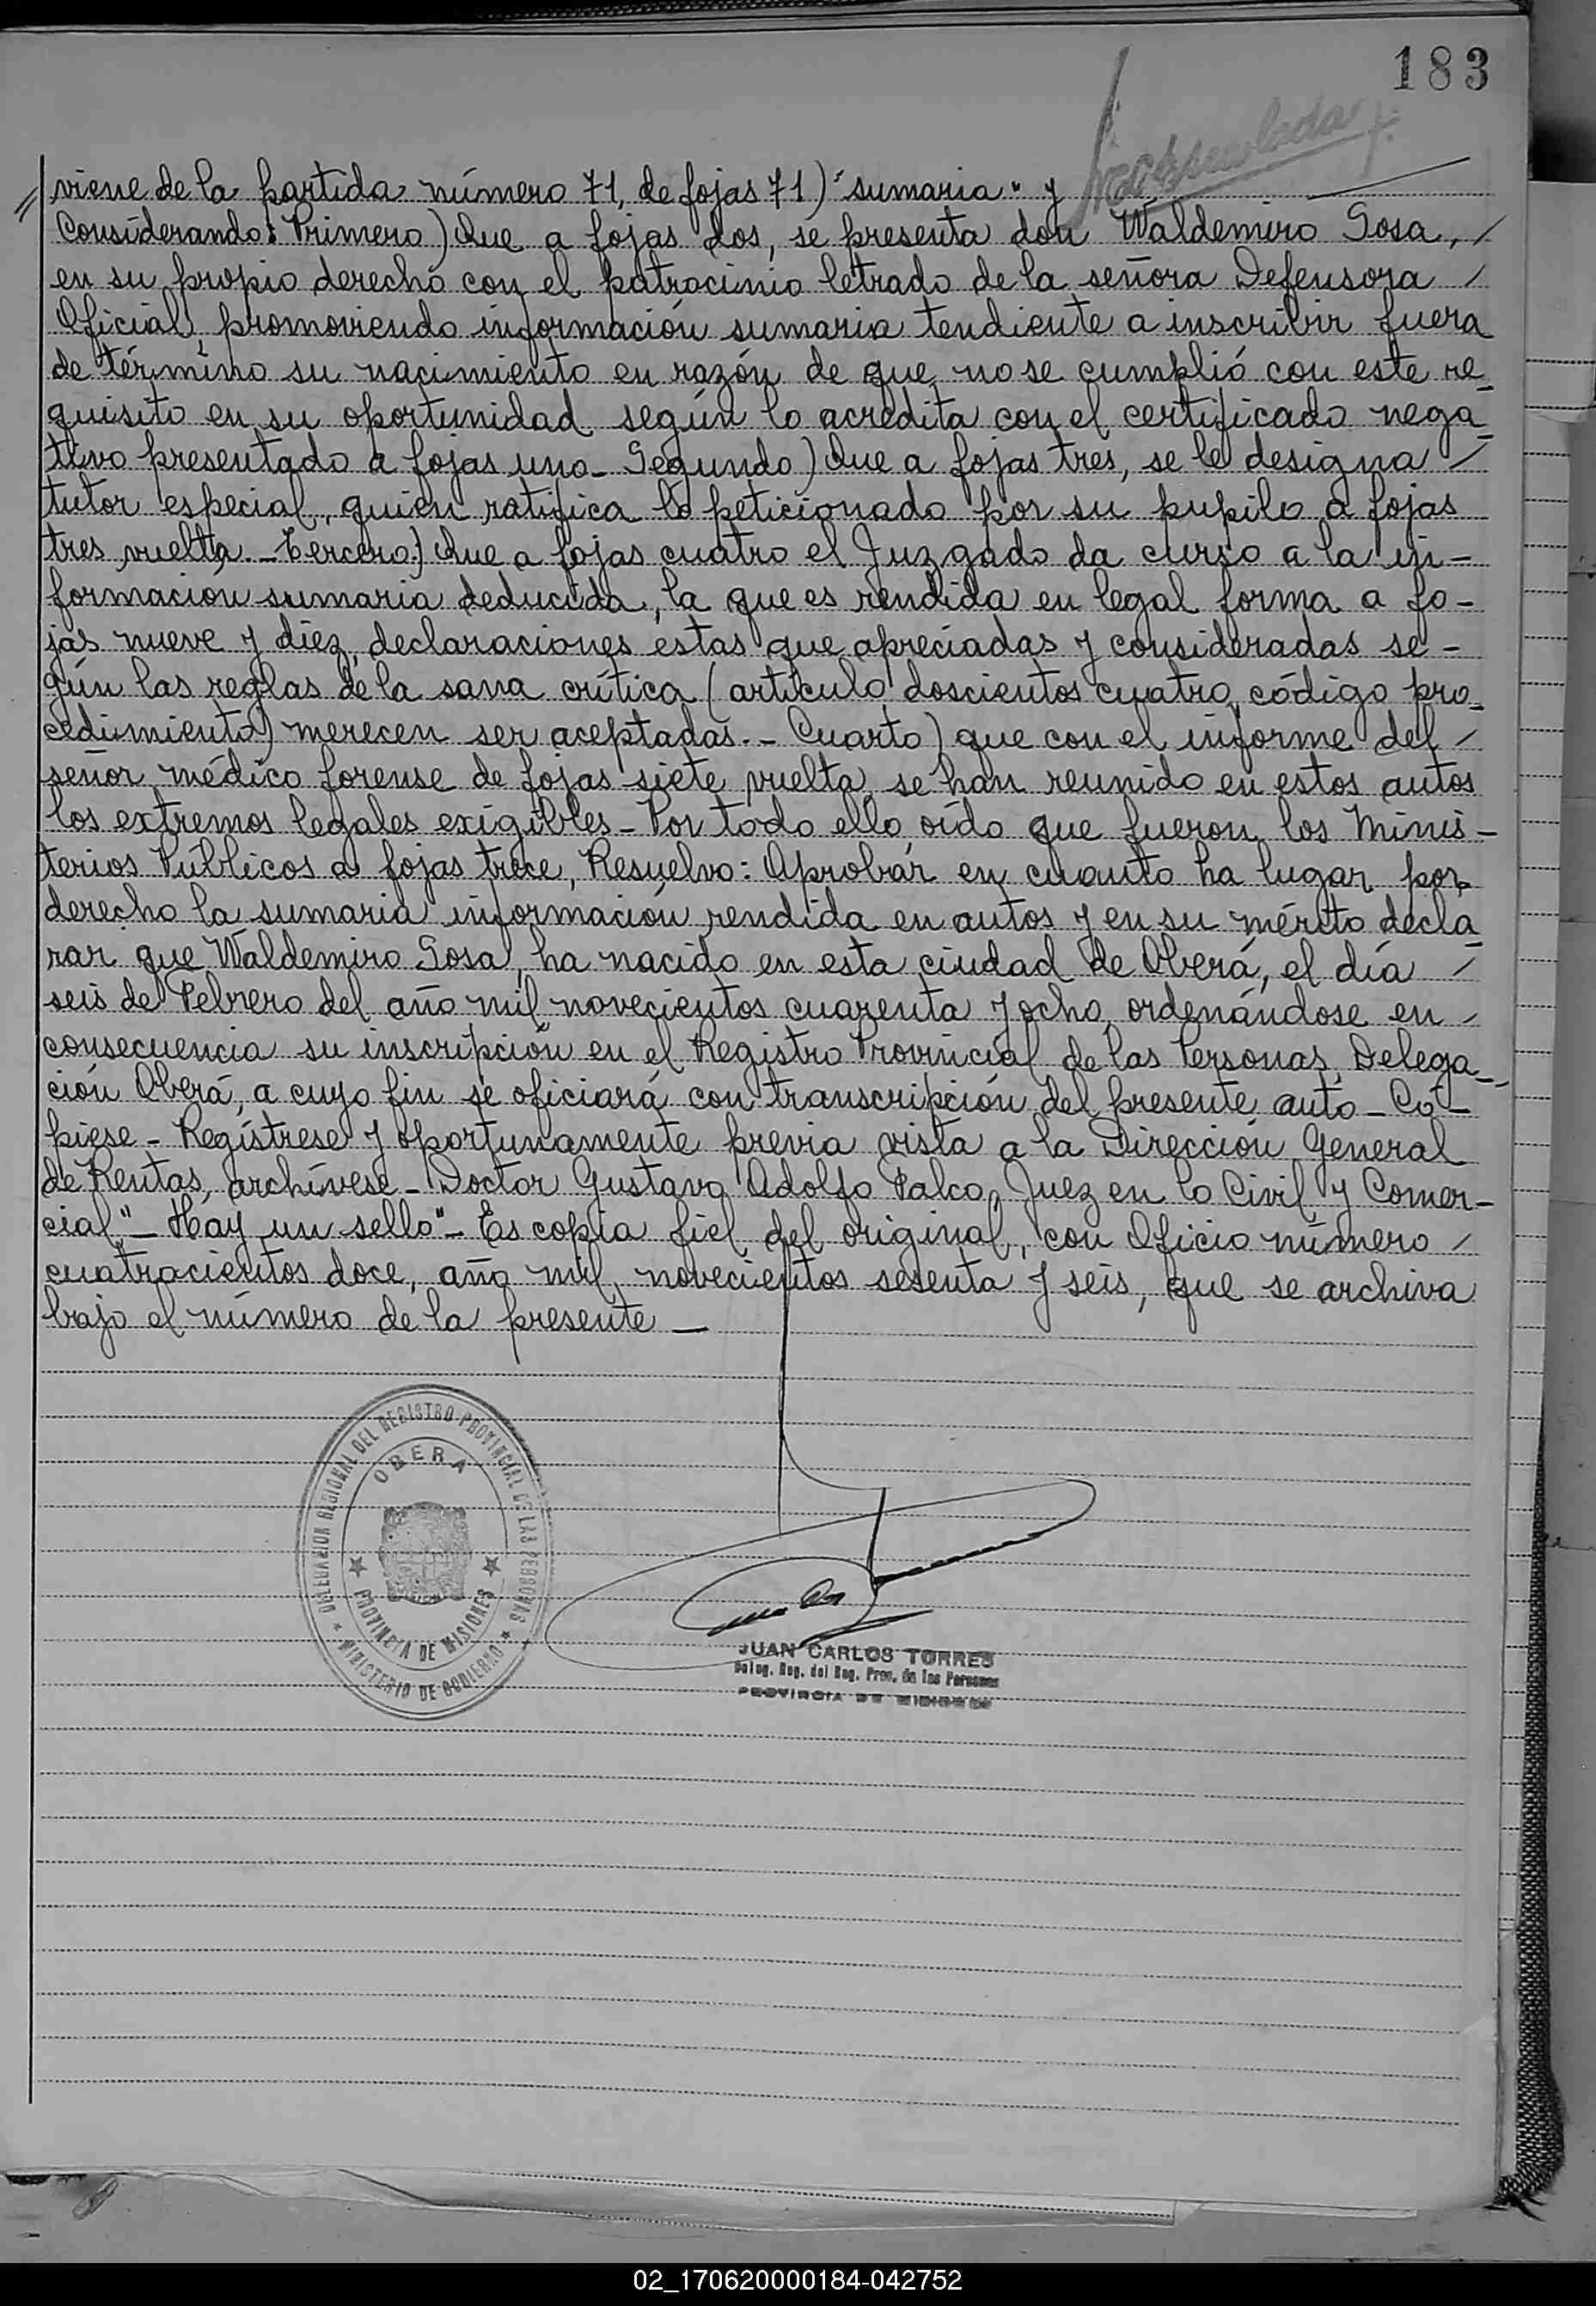 183
viene de la partida número 71, de fojas 71) "sumaria" y
Considerando: Primero) Que a fojas dos, se presenta don Waldemiro Sosa, /
en su propio derecho con el patrocinio letrado de la señora Defensora /
Oficial, promoviendo información sumaria tendiente a inscribir fuera
de término su nacimiento en razón de que no se cumplió con este re
quisito en su oportunidad según lo acredita con el certificado nega
tivo presentado a fojas uno_ Segundo) Que a fojas tres, se le designa /
tutor especial, quien ratifica lo peticionado por su pupilo a fojas
tres vuelta._ Tercero:) Que a fojas cuatro el Juzgado da curso a la in-
formación sumaria deducida, la que es rendida en legal forma a fo-
jas nueve y diez, declaraciones estas que apreciadas y consideradas se-
gún las reglas de la sana crítica (artículo doscientos cuatro, código pro_
cedimiento) merecen ser aceptadas._ Cuarto) que con el informe del /
señor médico forense de fojas siete vuelta, se han reunido en estos autos
los extremos legales exigibles_ Por todo ello, oído que fueron los Minis-
terios Públicos a fojas trece, Resuelvo: Aprobar en cuanto ha lugar por
derecho la sumaria información rendida en autos y en su mérito decla
rar que Waldemiro Sosa, ha nacido en esta ciudad de Oberá, el día /
seis de Febrero del año mil novecientos cuarenta y ocho, ordenándose en /
consecuencia su inscripción en el Registro Provincial de las Personas, Delega_
ción Oberá, a cuyo fin se oficiará con transcripción del presente auto_ Có_
piese_ Regístrese y oportunamente previa vista a la Dirección General
de Rentas, archívese_ Doctor Gustavo Adolfo Falco, Juez en lo Civil y Comer-
cial"_ Hay un sello"_ Es copia fiel del original, con Oficio número /
cuatrocientos doce, año mil novecientos sesenta y seis, que se archiva
bajo el número de la presente_
DELEGACION REGIONAL DEL REGISTRO PROVINCIAL DE LAS PERSONAS
OBERA
PROVINCIA DE MISIONES
MINISTERIO DE GOBIERNO
JUAN CARLOS TORRES
Deleg. Reg. del Reg. Prov. de las Personas
PROVINCIA DE MISIONES
02_170620000184-042752